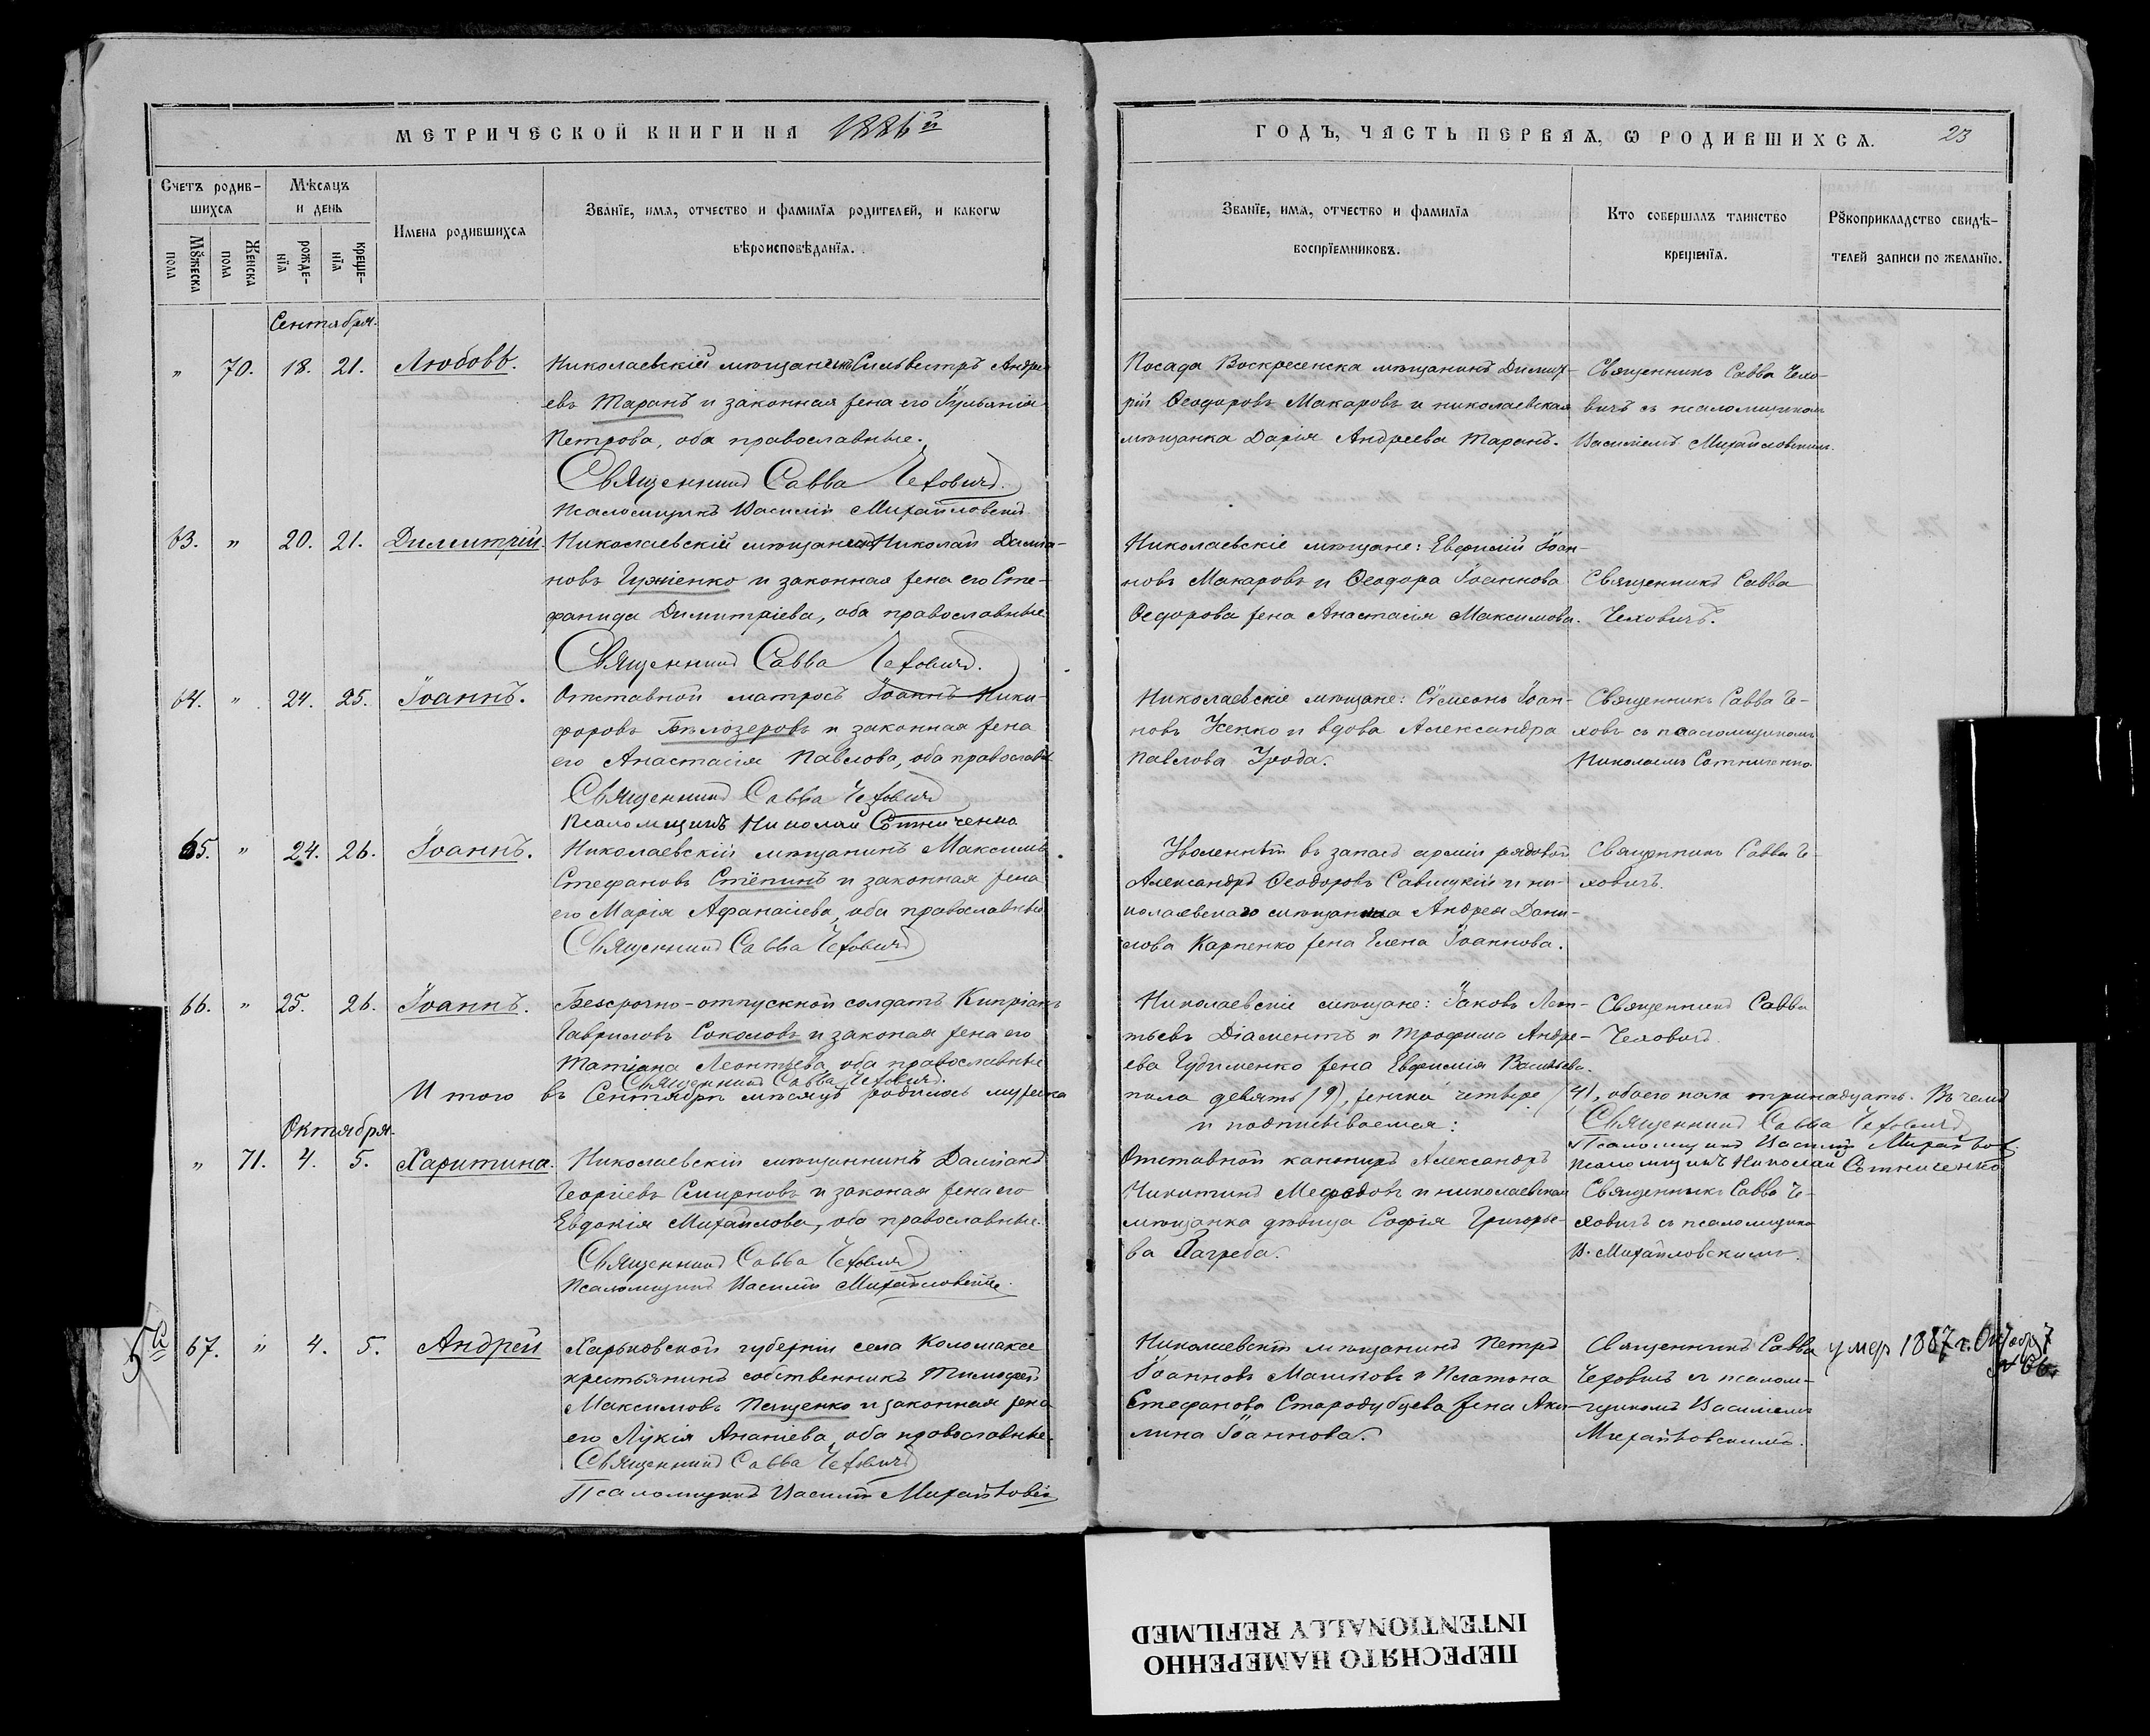 МЕТРИЧЕСКОЙ КНИГИ НА 1886й
ГОДЪ, ЧАСТЬ ПЕРВАЯ, Ѡ РОДИВШИХСЯ.
23
Счетъ родив-
шихся
Мужеска пола
Женска пола
Мѣсяцъ
и день
рожде-
нія
креще-
нія
Имена родившихся
Званіе, имя, отчество и фамилія родителей, и какогѡ
вѣроисповѣданія.
Званіе, имя, отчество и фамилія
воспріемниковъ.
Кто совершалъ таинство
крещенія.
Рукоприкладство свидѣ-
телей записи по желанію.
Сентября.
" 70. 18. 21. Любовь.
Николаевскій мѣщанинъ Сильвестръ Андре-
евъ Таранъ и законная жена его Іульянія
Петрова, оба православные.
Священникъ Савва Чеховичъ.
Псаломщикъ Василій Михайловскій
Посада Воскресенска мѣщанинъ Димит-
рій Ѳеодоровъ Макаровъ и николаевская
мѣщанка Дарія Андреева Таранъ.
Священникъ Савва Чехо-
вичъ съ псаломщикомъ
Василіемъ Михайловскимъ.
63. " 20. 21. Димитрій.
Николаевскій мѣщанинъ Николай Даміа-
новъ Гужіенко и законная жена его Сте-
фанида Димитріева, оба православные.
Священникъ Савва Чеховичъ.
Николаевскіе мѣщане: Евфимій Іоан-
новъ Макаровъ и Ѳеодора Іоаннова
Ѳедорова жена Анастасія Максимова.
Священникъ Савва
Чеховичъ.
64. " 24. 25. Іоаннъ.
Отставной матросъ Іоаннъ Ники-
форовъ Бѣлозеровъ и законная жена
его Анастасія Павлова, оба православн
Священникъ Савва Чеховичъ
Псаломщикъ Николай Сотниченко
Николаевскіе мѣщане: Сѵмеонъ Іоан-
новъ Усенко и вдова Александра
Павлова Урода.
Священникъ Савва Че-
ховъ съ псаломщикомъ
Николаемъ Сотниченко
65. " 24. 26. Іоаннъ.
Николаевскій мѣщанинъ Максимъ
Стефановъ Стёпинъ и законная жена
его Марія Афанасіева, оба православные
Священникъ Савва Чеховичъ
Уволенный въ запасъ арміи рядовой
Александръ Ѳеодоровъ Савицкій и ни-
колаевскаго мѣщанина Андрея Дани-
лова Карпенко жена Елена Іоаннова.
Священникъ Савва Че-
ховичъ.
66. " 25. 26. Іоаннъ.
Безсрочно-отпускной солдатъ Кипріанъ
Гавриловъ Соколовъ и законая жена его
Татіана Леонтьева, оба православные
Священникъ Савва Чеховичъ.
Николаевскіе мѣщане: Іаковъ Леон-
тьевъ Діаментъ и Трофима Андре-
ева Гудименко жена Евфимія Васильева.
Священникъ Савва
Чеховичъ
Итого въ Сентябрѣ мѣсяцѣ родилось мужеска
пола девять (9), женска четыре (4), обоего пола тринадцать. Въ чемъ
и подписываемся: Священникъ Савва Чеховичъ
Псаломщикъ Василій Михайлов
Псаломщикъ Николай Сотниченко
Октября.
" 71. 4. 5. Харитина.
Николаевскій мѣщанинъ Даміанъ
Георгіевъ Смирновъ и законая жена его
Евдокія Михайлова, оба православные.
Священникъ Савва Чеховичъ
Псаломщикъ Василій Михайловскій.
Отставной канониръ Александръ
Никитинъ Мефодовъ и николаевская
мѣщанка дѣвица Софія Григорье-
ва Загреба.
Священникъ Савва Че-
ховичъ съ псаломщико
В. Михайловскимъ.
67. " 4. 5. Андрей
Харьковской губерніи села Коломака
крестьянинъ собственникъ Тимофей
Максимовъ Пащенко и законная жена
его Лукія Ананіева, оба православные.
Священникъ Савва Чеховичъ
Псаломщикъ Василій Михайловскій
Николаевскій мѣщанинъ Петръ
Іоанновъ Машковъ и Платона
Стефанова Стародубцева жена Аки-
лина Іоаннова.
Священникъ Савва
Чеховичъ и псалом-
щикомъ Василіемъ
Михайловскимъ.
умер 1887 г. Октяб 7
№ 66.
ПЕРЕСНЯТО НАМЕРЕННО
INTENTIONALLY REFILMED